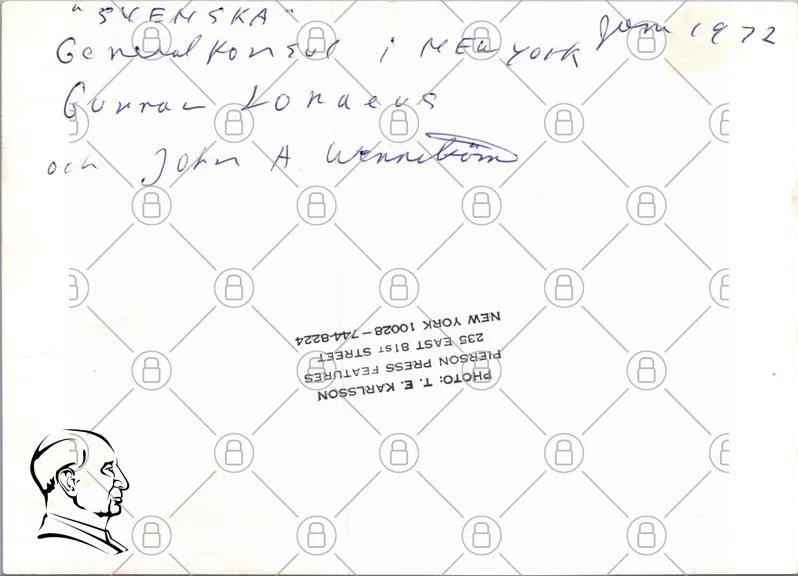 "SVENSKA"
Generalkonsul i NEW YORK Juni 1972
Gunnar Lonaeus
och John A Wennström
PHOTO: T. E. KARLSSON
PIERSON PRESS FEATURES
235 EAST 81ST STREET
NEW YORK 10028-744-8224